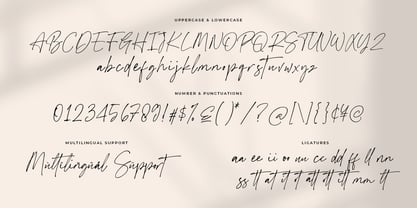 UPPERCASE & LOWERCASE
ABCDEFGHIJKLMNOPQRSTUVWXYZ
abcdefghijklmnopqrstuvwxyz
NUMBER & PUNCTUATIONS
0123456789!#$%&()*/?@[\]{}¢¥@
MULTILINGUAL SUPPORT
Multilingual Support
LIGATURES
aa ee ii oo uu cc dd ff ll nn
ss tt at it ot att ott ell mm tt